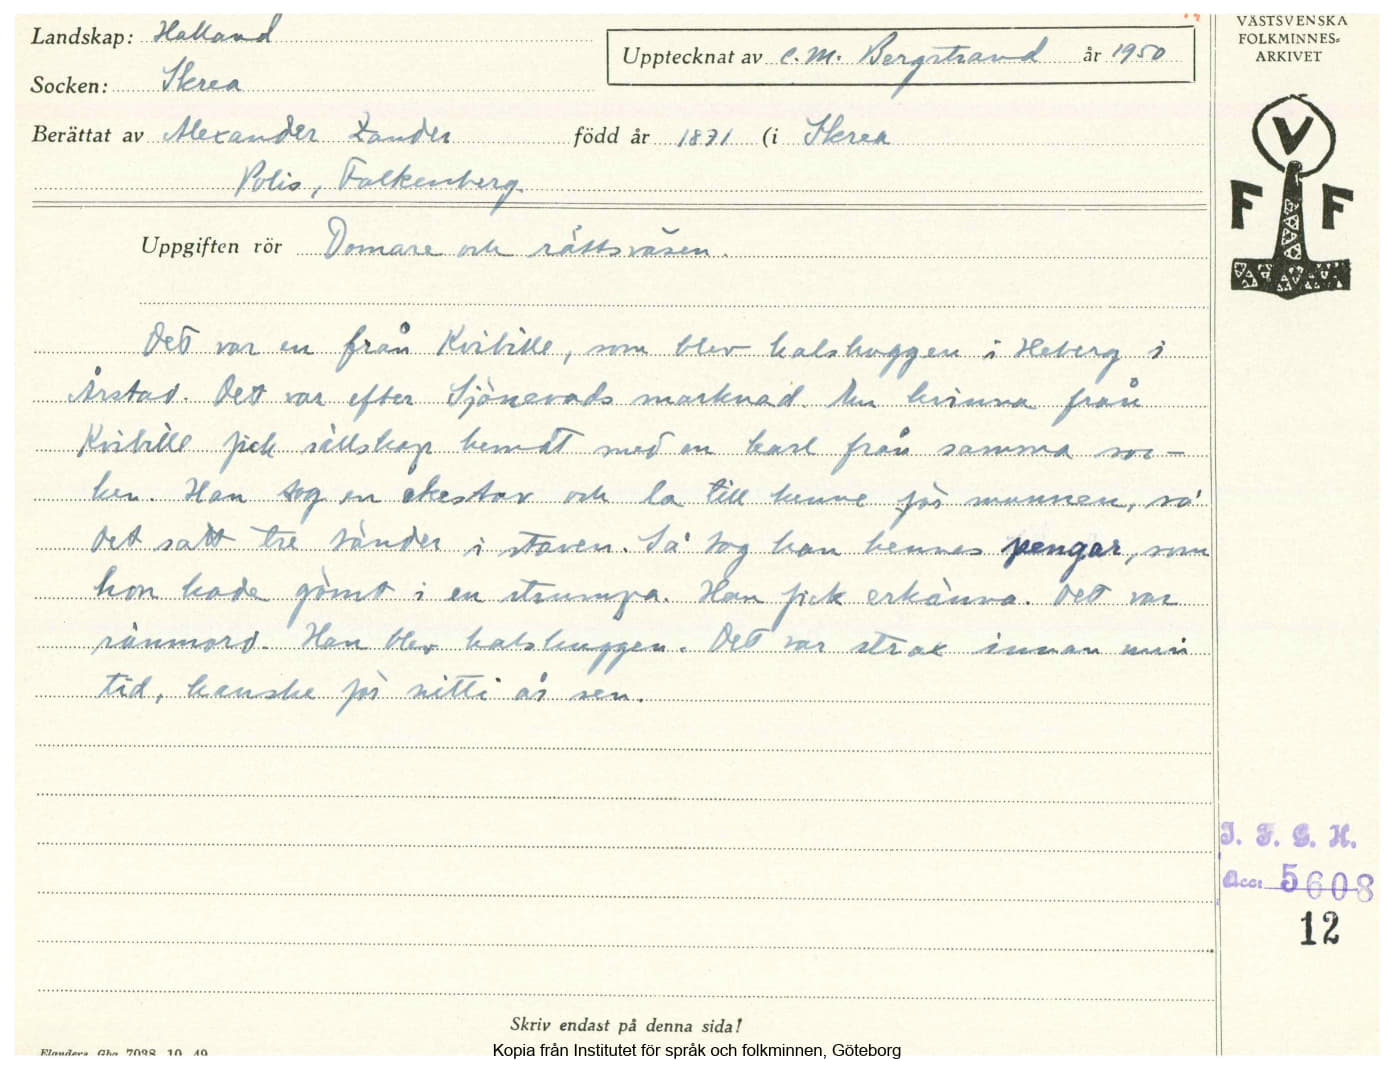 Landskap: Halland
Upptecknat av C. M. Bergstrand år 1950
Socken: Skrea
Berättat av Alexander Zander född år 1871 (i Skrea
Polis, Falkenberg
Uppgiften rör Domare och rättsväsen.
Det var en från Kvibille, som blev halshuggen i Heberg i
Årstad. Det var efter Sjönevads marknad. En kvinna från
Kvibille fick sällskap hemåt med en karl från samma soc-
ken. Han tog en ekestav och la till henne för munnen, så
det satt tre tänder i staven. Så tog han hennes pengar, som
hon hade gömt i en strumpa. Han fick erkänna. Det var
rånmord. Han blev halshuggen. Det var strax innan min
tid, kanske för nitti år sen.
Skriv endast på denna sida!
Flanders Gbg 7038 10 49
Kopia från Institutet för språk och folkminnen, Göteborg
VÄSTSVENSKA
FOLKMINNES-
ARKIVET
V
F F
I. F. G. H.
Acc: 5608
12